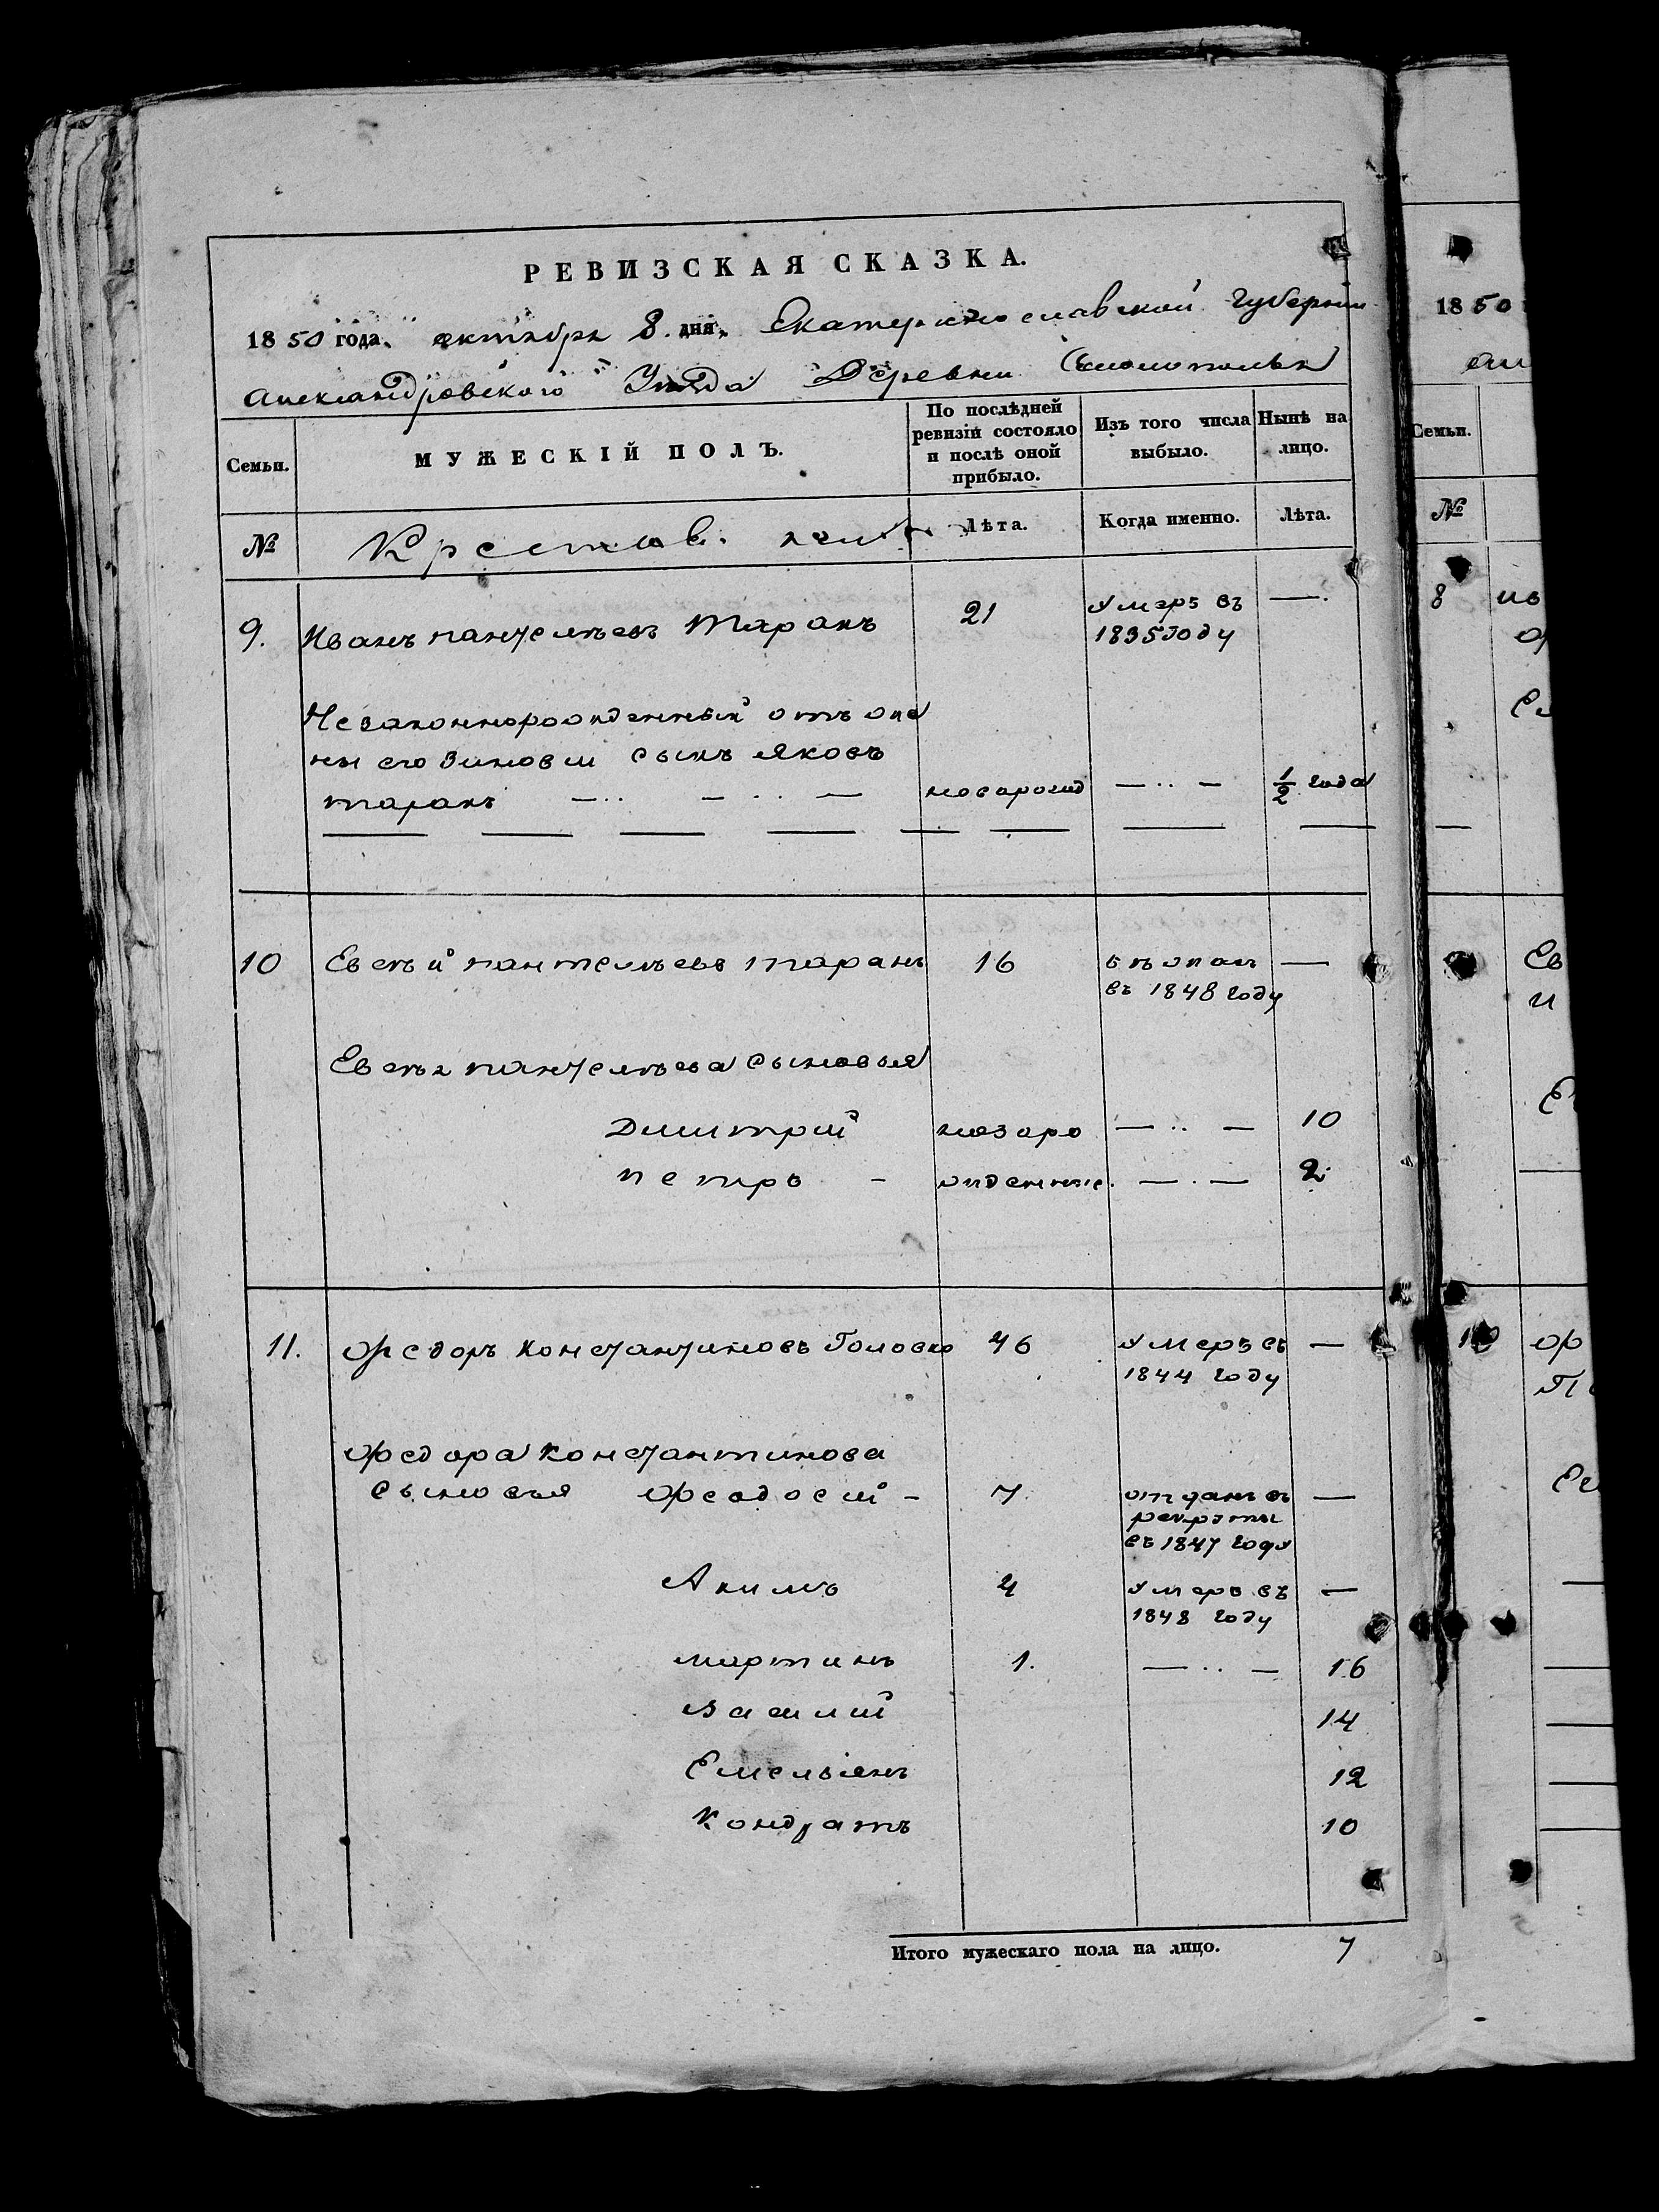 РЕВИЗСКАЯ СКАЗКА.
1850 года. октября 8. дня. Екатеринославской Губерніи
Александровского Уѣзда Деревни
Семьи.
МУЖЕСКІЙ ПОЛЪ.
По послѣдней ревизіи состояло и послѣ оной прибыло.
Изъ того числа выбыло.
Нынѣ на лицо.
№
Лѣта.
Когда именно.
Лѣта.
9. Иванъ пантелѣевъ Таранъ 21 умеръ въ —.
1835 году
Незаконнорожденный отъ жe
ны его Зиновіи сынъ Яковъ
таранъ — .. — .. — новорожд — .. — 1/2 года
10 Евсѣй пантелѣевъ таранъ 16 бѣжалъ —
въ 1848 году
Евсѣя пантелѣева сыновья
Дмитрий новоро — .. — 10
петръ - жденные. — . — 2
11. Федоръ Константиновъ Головко 46 умеръ въ —
1844 году
Федора Константинова
сыновья Феодосій - 7. отданъ въ —
рекруты
въ 1847 году
Акимъ 4 умеръ въ —
1848 году
мартинъ 1. — .. — 16
василий 14
Емельянъ 12
Кондратъ 10
Итого мужескаго пола на лицо. 7
1850
Семьи.
№
8 ив
Ев
и